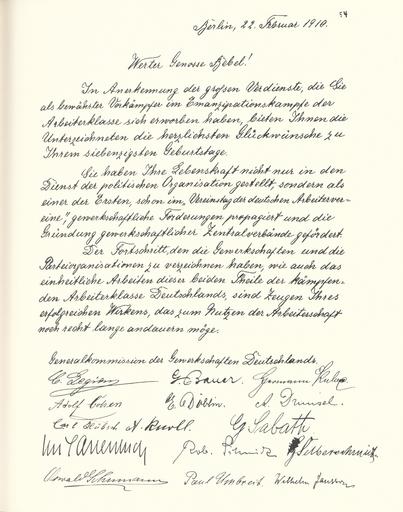 54
Berlin, 22. Februar 1910.
Werter Genosse Bebel!
In Anerkennung der großen Verdienste, die Sie
als bewährter Vorkämpfer im Emanzipationskampfe der
Arbeiterklasse sich erworben haben, bieten Ihnen die
Unterzeichneten die herzlichsten Glückwünsche zu
Ihrem siebenzigsten Geburtstage.
Sie haben Ihre Lebenskraft nicht nur in den
Dienst der politischen Organisation gestellt, sondern als
einer der Ersten, schon im „Vereinstag der deutschen Arbeiterver-
eine" gewerkschaftliche Forderungen propagiert und die
Gründung gewerkschaftlicher Zentralverbände gefördert.
Der Fortschritt, den die Gewerkschaften und die
Parteiorganisationen zu verzeichnen haben, wie auch das
einheitliche Arbeiten dieser beiden Theile der kämpfen-
den Arbeiterklasse Deutschlands, sind Zeugen Ihres
erfolgreichen Wirkens, das zum Nutzen der Arbeiterschaft
noch recht lange andauern möge.
Generalkommission der Gewerkschaften Deutschlands.
C. Legien G. Bauer. Hermann Kube
Adolf Cohen E. Döblin. A. Drunsel.
Carl Hübsch A. Knoll. G. Sabath
Rob. Schmidt Silberschmidt
Oswald Schumann Paul Umbreit. Wilhelm Jansson